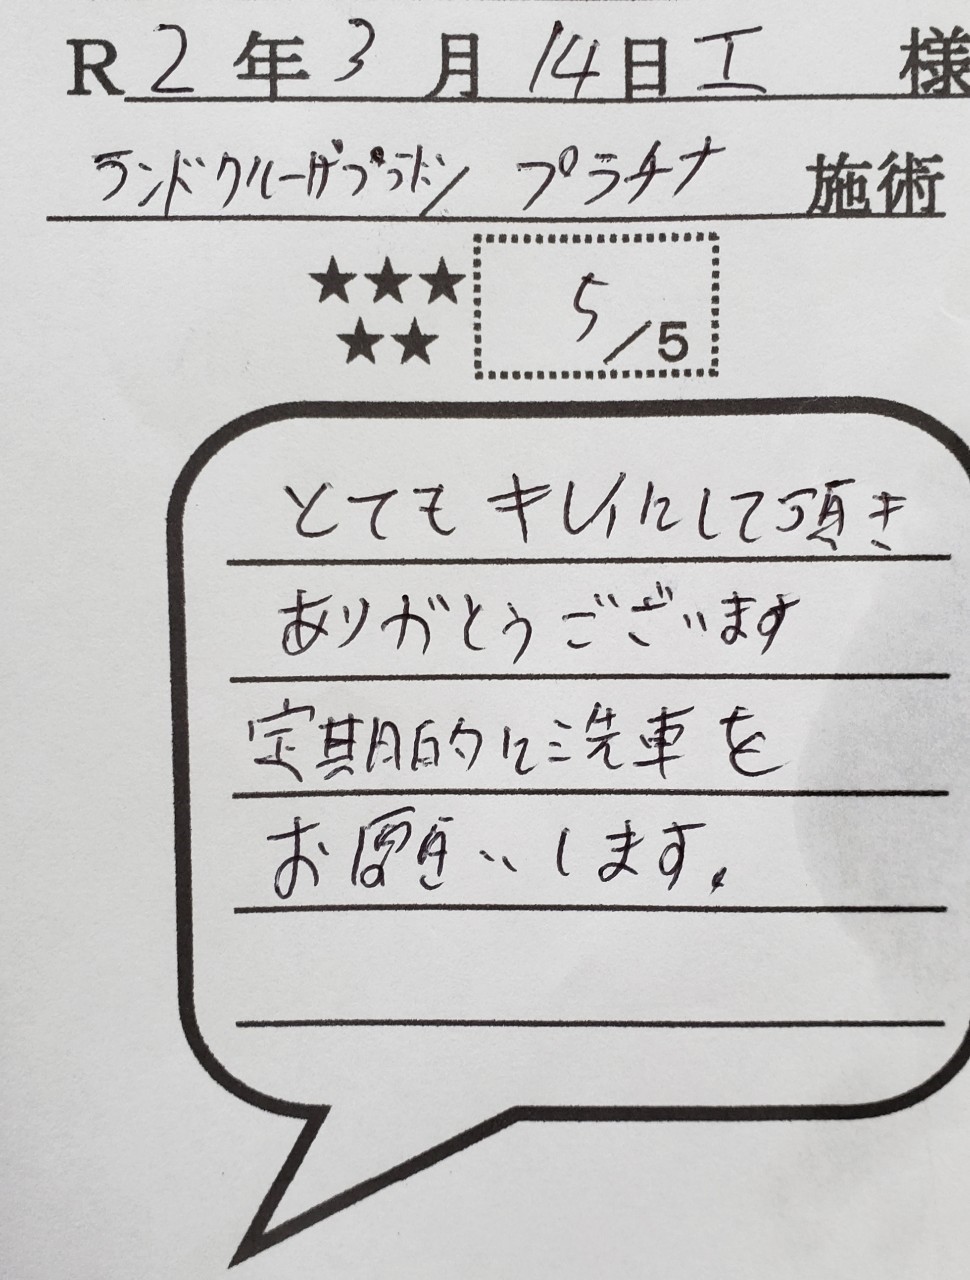 R2年3月14日 エ 様
ランドクルーザプラド/ プラチナ 施術
★★★
★★
5/5
とてもキレイにして頂き
ありがとうございます
定期的に洗車を
お願いします.